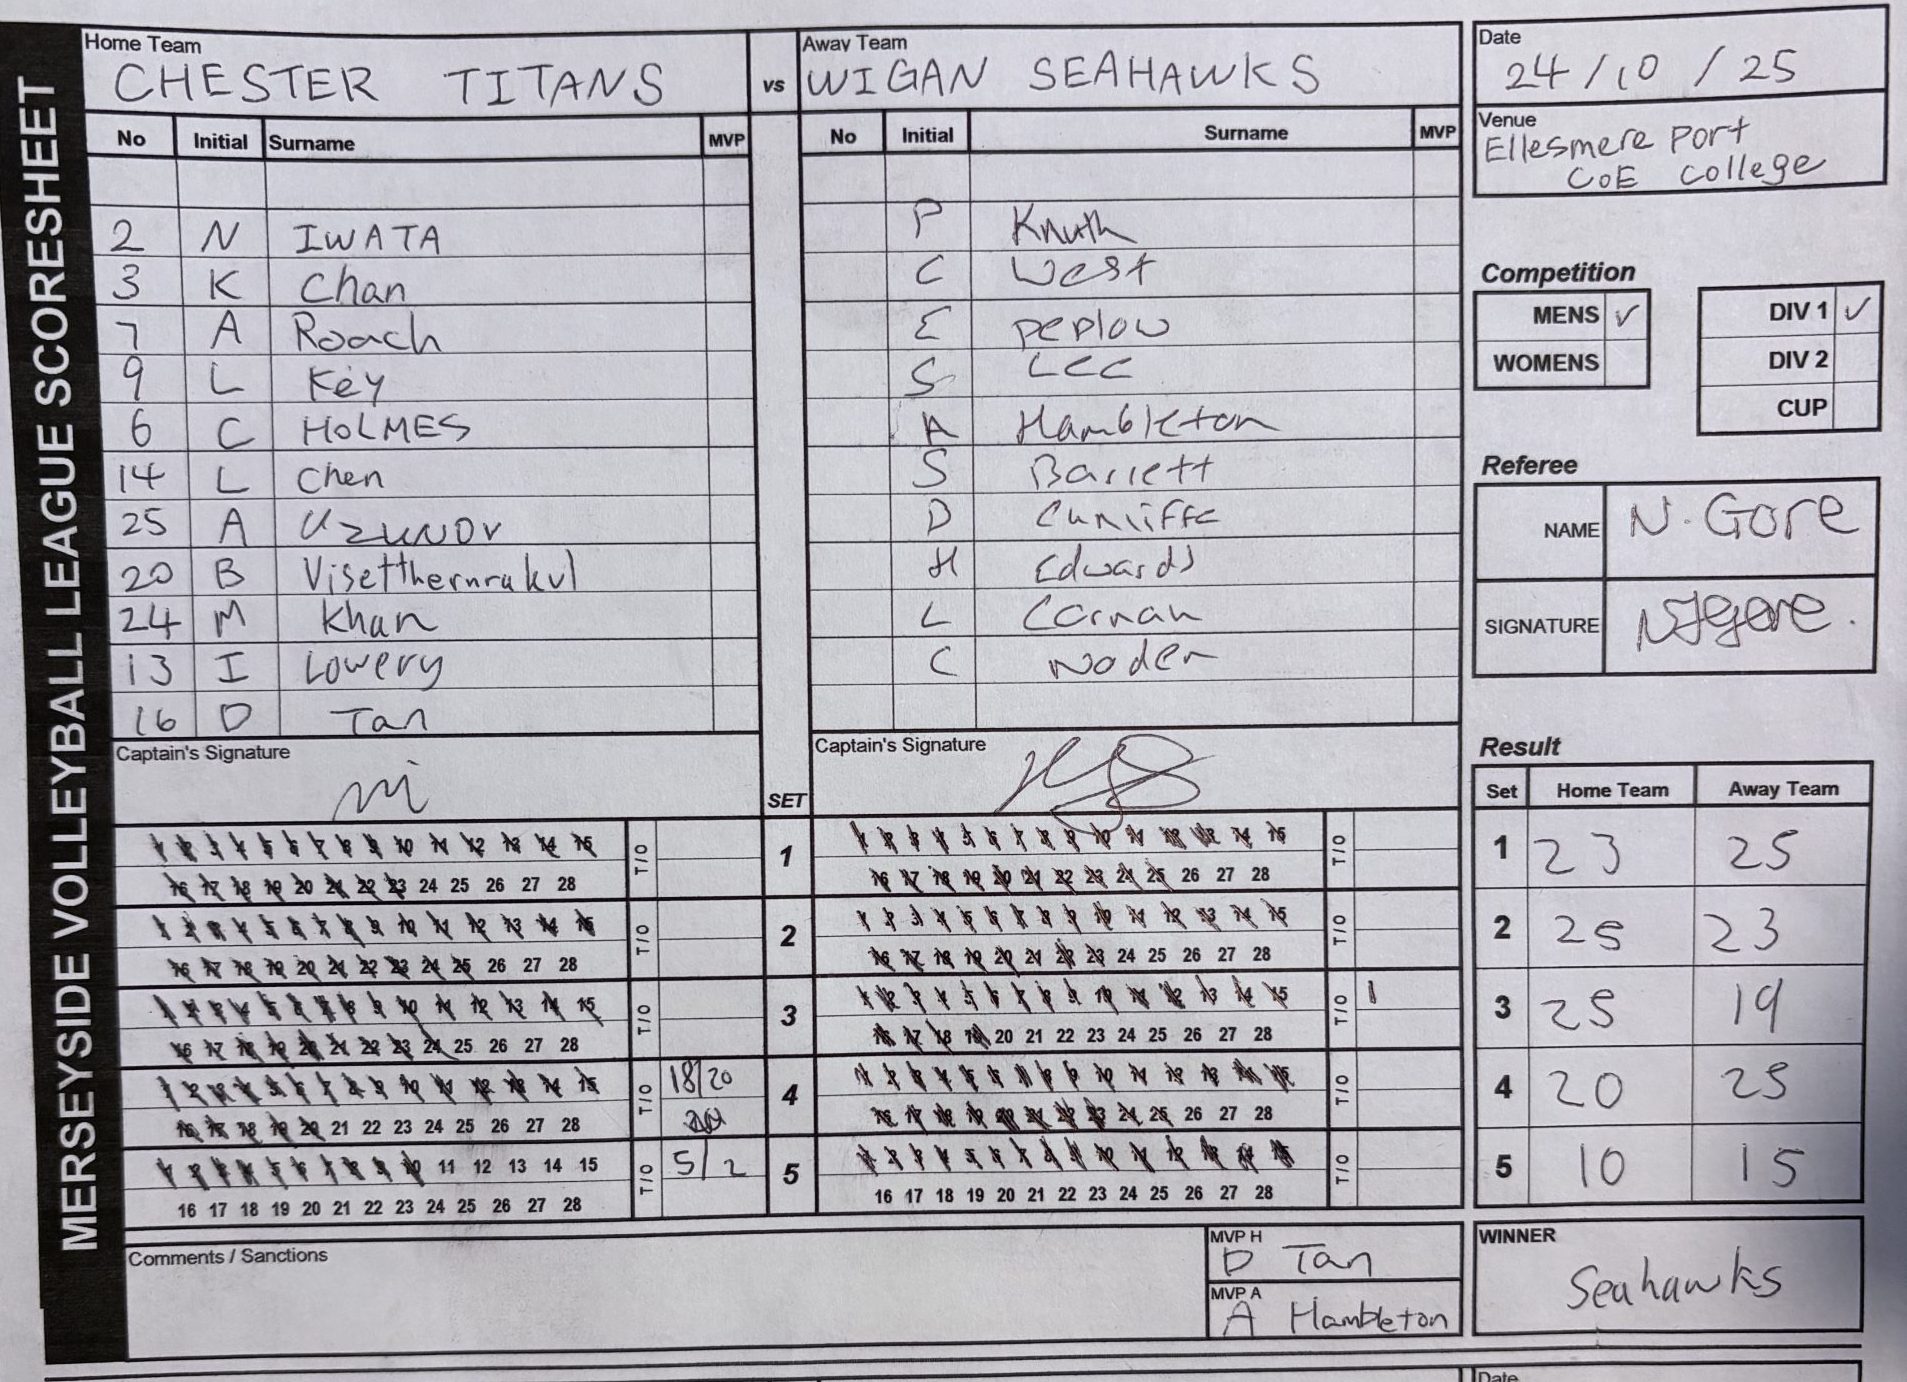 MERSEYSIDE VOLLEYBALL LEAGUE SCORESHEET
Home Team
CHESTER TITANS
vs
Away Team
WIGAN SEAHAWKS
Date
24/10/25
Venue
Ellesmere Port
CoE College
No Initial Surname MVP
2 N IWATA
3 K Chan
7 A Roach
9 L Key
6 C HOLMES
14 L Chen
25 A UZUNOV
20 B Visetthernrakul
24 M Khan
13 I Lowery
16 D Tan
Captain's Signature
No Initial Surname MVP
P Knuth
C West
E Peplow
S Lee
A Hambleton
S Barrett
D Cunliffe
H Edwards
L
C Noden
Captain's Signature
SET
1 2 3 4 5 6 7 8 9 10 11 12 13 14 15 T/O 1 1 2 3 4 5 6 7 8 9 10 11 12 13 14 15 T/O
16 17 18 19 20 21 22 23 24 25 26 27 28 16 17 18 19 20 21 22 23 24 25 26 27 28
1 2 3 4 5 6 7 8 9 10 11 12 13 14 15 T/O 2 1 2 3 4 5 6 7 8 9 10 11 12 13 14 15 T/O
16 17 18 19 20 21 22 23 24 25 26 27 28 16 17 18 19 20 21 22 23 24 25 26 27 28
1 2 3 4 5 6 7 8 9 10 11 12 13 14 15 T/O 3 1 2 3 4 5 6 7 8 9 10 11 12 13 14 15 T/O 1
16 17 18 19 20 21 22 23 24 25 26 27 28 16 17 18 19 20 21 22 23 24 25 26 27 28
1 2 3 4 5 6 7 8 9 10 11 12 13 14 15 T/O 18/20 4 1 2 3 4 5 6 7 8 9 10 11 12 13 14 15 T/O
16 17 18 19 20 21 22 23 24 25 26 27 28 16 17 18 19 20 21 22 23 24 25 26 27 28
1 2 3 4 5 6 7 8 9 10 11 12 13 14 15 T/O 5/2 5 1 2 3 4 5 6 7 8 9 10 11 12 13 14 15 T/O
16 17 18 19 20 21 22 23 24 25 26 27 28 16 17 18 19 20 21 22 23 24 25 26 27 28
Comments / Sanctions
MVP H
D Tan
MVP A
A Hambleton
Competition
MENS ✓
WOMENS
DIV 1 ✓
DIV 2
CUP
Referee
NAME N. Gore
SIGNATURE
Result
Set Home Team Away Team
1 23 25
2 25 23
3 25 19
4 20 25
5 10 15
WINNER
Seahawks
Date